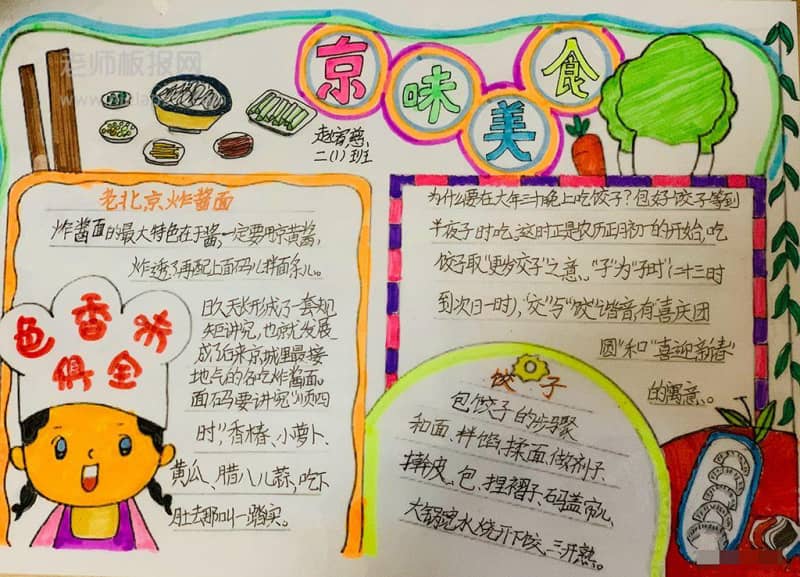 老师板报网
京味美食
二(1)班
老北京炸酱面
炸酱面的最大特色在于酱,一定要用京黄酱,
炸透了再配上面码儿拌面条儿。
日久天长形成了一套规
矩讲究,也就发展
成了后来京城里最接
地气的名吃炸酱面。
面码要讲究“顺四
时”,香椿、小萝卜、
黄瓜、腊八儿蒜,吃下
肚去那叫一踏实。
色香味
俱全
为什么要在大年三十晚上吃饺子?包好饺子等到
半夜子时吃,这时正是农历正月初一的开始,吃
饺子取“更岁交子”之意、“子”为“子时”(二十三时
到次日一时),“交”与“饺”谐音,有“喜庆团
圆”和“喜迎新春”
的寓意。
饺子
包饺子的步骤
和面、拌馅、揉面、做剂子、
擀皮、包、捏褶子、码盖帘儿、
大锅宽水烧开下饺、三开熟。